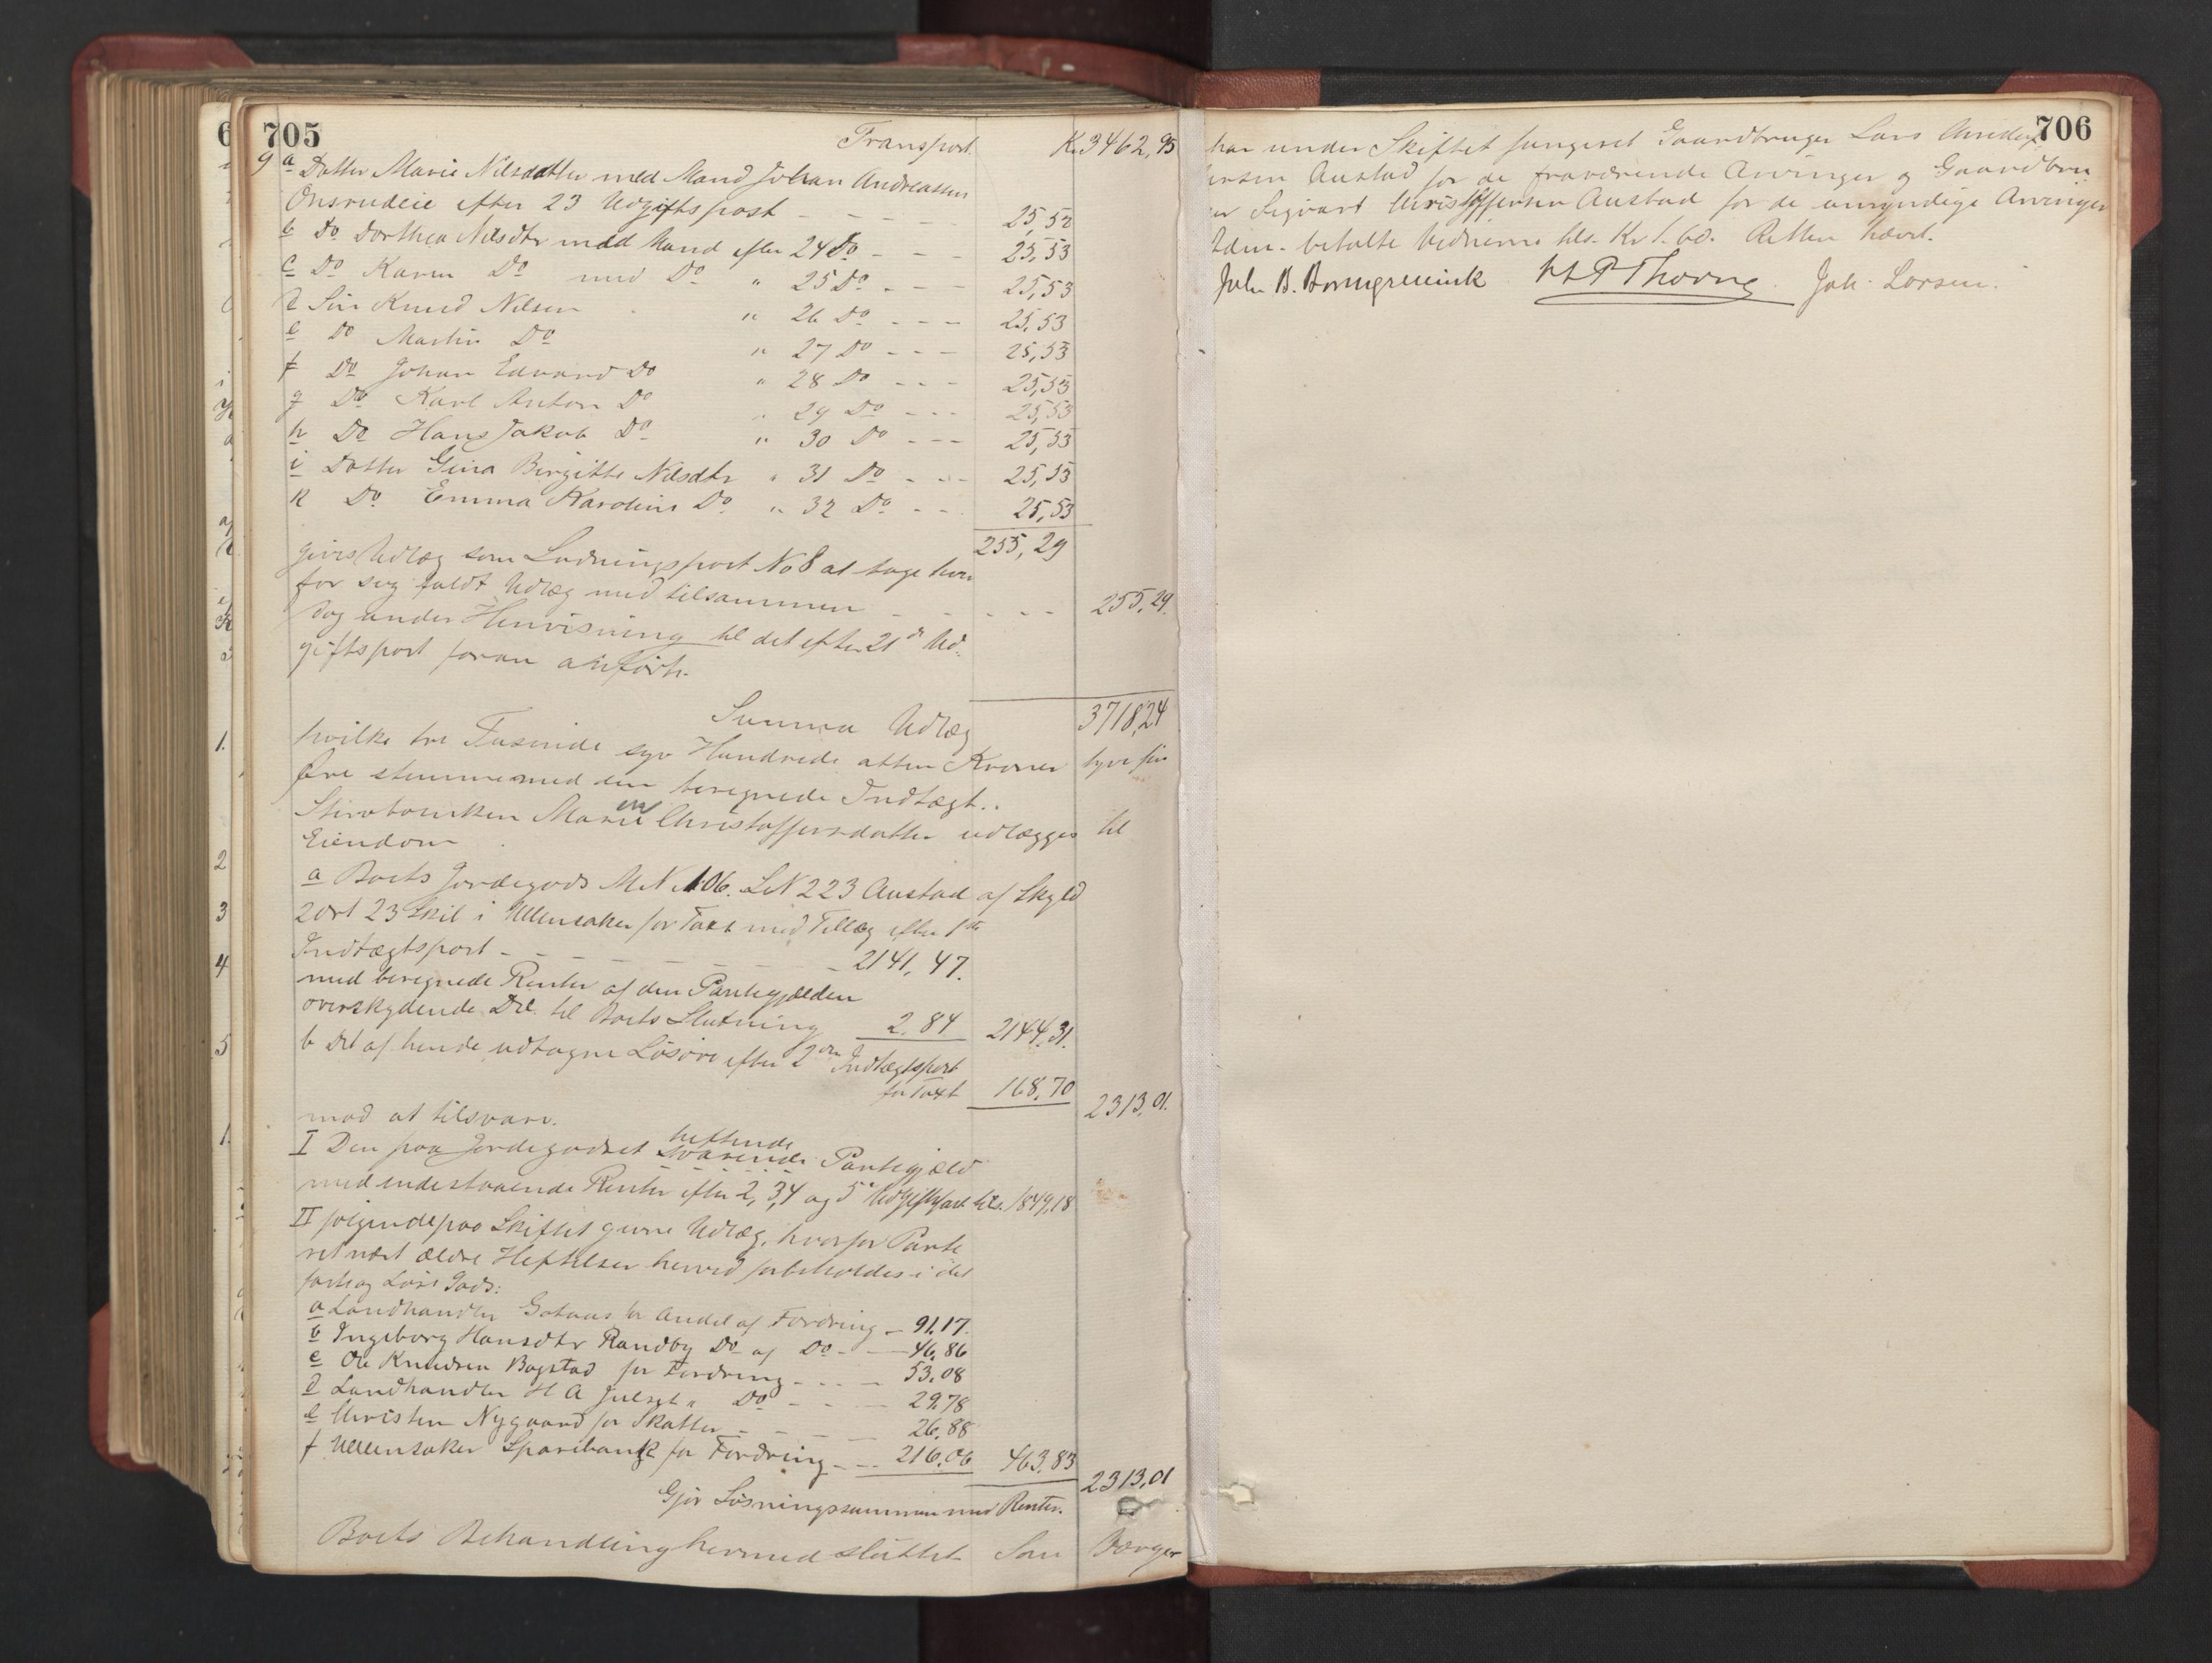 705
Transport Kr 3462,95
9 a Datter Marie Nilsdatter med Mand Johan Andreassen
Onsrudeie efter 23 Udgiftspost - - - - 25,52
b Do Dorthea Nilsdtr med Mand efter 24 Do - - - 25,53
c Do Karen Do med Do " 25 Do - - - 25,53
d Søn Knud Nilsen " 26 Do - - - 25,53
e Do Martin Do " 27 Do - - - 25,53
f Do Johan Edvard Do " 28 Do - - - 25,53
g Do Karl Anton Do " 29 Do - - - 25,53
h Do Hans Jakob Do " 30 Do - - - 25,53
i Datter Gina Birgitte Nilsdtr " 31 Do - - - 25,53
k Do Emma Karoline Do " 32 Do - - - 25,53
255,29
gives Udlæg som Ladningspost No 8 at tage hver
for sig fuldt Udlæg med tilsammen - - - - - 255,29.
dog under Henvisning til det efter 21de Ud-
giftspost foran anførte.
Summa Udlæg 3718,24
hvilke tre Tusinde syv Hundrede atten Kroner tyve fire
Øre stemme med den beregnede Indtægt.
Stervboenken Maren Christoffersdatter udlægges til
Eiendom
a Boets Jordegods M N 106. L N 223 Austad af Skyld
2 ort 23 Skil i Ullensaker for Taxt med Tillæg efter 1ste
Indtægtspost - - - - - - - 2141,47.
med beregnede Renter af den Pantegjælden
overskydende Del til Boets Slutning 2.84 2144,31.
b Det af hende udtagne Løsøre efter 2den Indtægtspost
for Taxt 168,70 2313,01.
mod at tilsvare.
I Den paa Jordegodset heftende svarende Pantegjæld
med indestaaende Renter efter 2, 3, 4 og 5te Udgiftspost tils. 1849,18
II følgende paa Skiftet givne Udlæg, hvorfor Pante
ret næst ældre Heftelser herved forbeholdes i det
faste og Løse Gods:
a Landhandler Gotaas for Andel af Fordring - 91,17.
b Ingeborg Hansdtr Randby Do af Do - - 46,86
c Ole Knudsen Bogstad for Fordring - - - 53,08
d Landhandler H A Julset " Do - - - 29,78
e Christen Nygaard for Skatter - - - 26,88
f Ullensaker Sparebank for Fordring - - 216,06 463,83 2313,01
Gjør Løsningssummen med Renter.
Boets Behandling hermed sluttet Som Værger
706
har under Skiftet fungeret Gaardbruger Lars Amund
ersen Austad for de fraværende Arvinger og Gaardbru
er Sigvart Christoffersen Austad for de umyndige Arvinger
Edm. betalte Vidnerne tils. Kr 1.60. Retten hævet.
Joh. B. Borchgrevink H P Thorne Joh. Larsen.